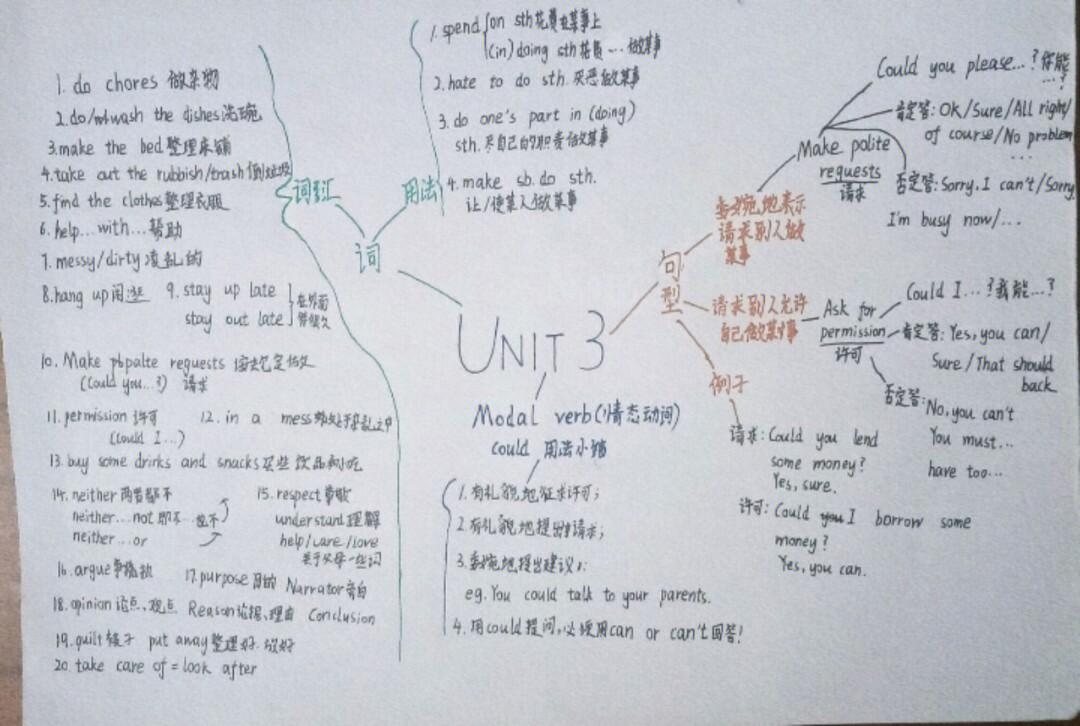 1. do chores 做杂物
2. do/wash the dishes 洗碗
3. make the bed 整理床铺
4. take out the rubbish/trash 倒垃圾
5. find the clothes 整理衣服
6. help...with...帮助
7. messy/dirty 凌乱的
8. hang up 闲逛 9. stay up late
stay out late 在外面待很久
10. Make polite requests
(Could you...?) 请求
11. permission 许可 12. in a mess 处于杂乱之中
(Could I...)
13. buy some drinks and snacks 买些饮品和小吃
14. neither 两者都不 15. respect 尊敬
neither...not 即不...也不 understand 理解
neither...or help/care/love
关于父母一些词
16. argue 争 17. purpose 目的 Narrator 旁白
18. opinion 论点、观点 Reason 论据、理由 Conclusion
19. quilt 被子 put away 整理好.放好
20. take care of = look after
词汇
用法
词
1. spend on sth 花费在某事上
(in) doing sth 花费...做某事
2. hate to do sth. 厌恶做某事
3. do one's part in (doing)
sth. 尽自己的职责做某事
4. make sb. do sth.
让/使某人做某事
UNIT 3
Modal verb (情态动词)
could 用法小
1. 有礼貌地征求许可;
2. 有礼貌地提出请求;
3. 委婉地提出建议;
eg. You could talk to your parents.
4. 用could提问,必须用can or can't回答!
句型
委婉地表示
请求别人做
某事
Make polite
requests
请求
Could you please...? 你能
...?
肯定答: OK/Sure/All right/
of course/No problem
...
否定答: Sorry, I can't/Sorry
I'm busy now/...
请求别人允许
自己做某事
Ask for
permission
许可
Could I...? 我能...?
肯定答: Yes, you can/
Sure/That should
back
否定答: No, you can't
You must...
have too...
例子
请求: Could you lend
some money?
Yes, sure.
许可: Could you I borrow some
money?
Yes, you can.